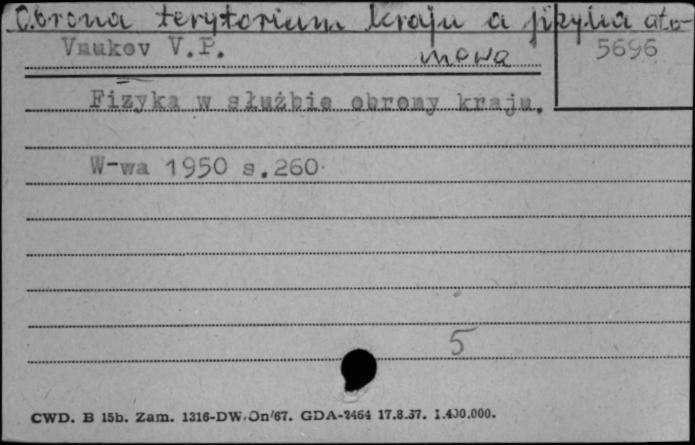 Obrona terytorium kraju a fizyka ato-
mowa
Vnukov V.P.
5696
Fizyka w służbie obrony kraju.
W-wa 1950 s.260
5
CWD. B 15b. Zam. 1316-DW/On/67. GDA-2464 17.8.67. 1.400.000.